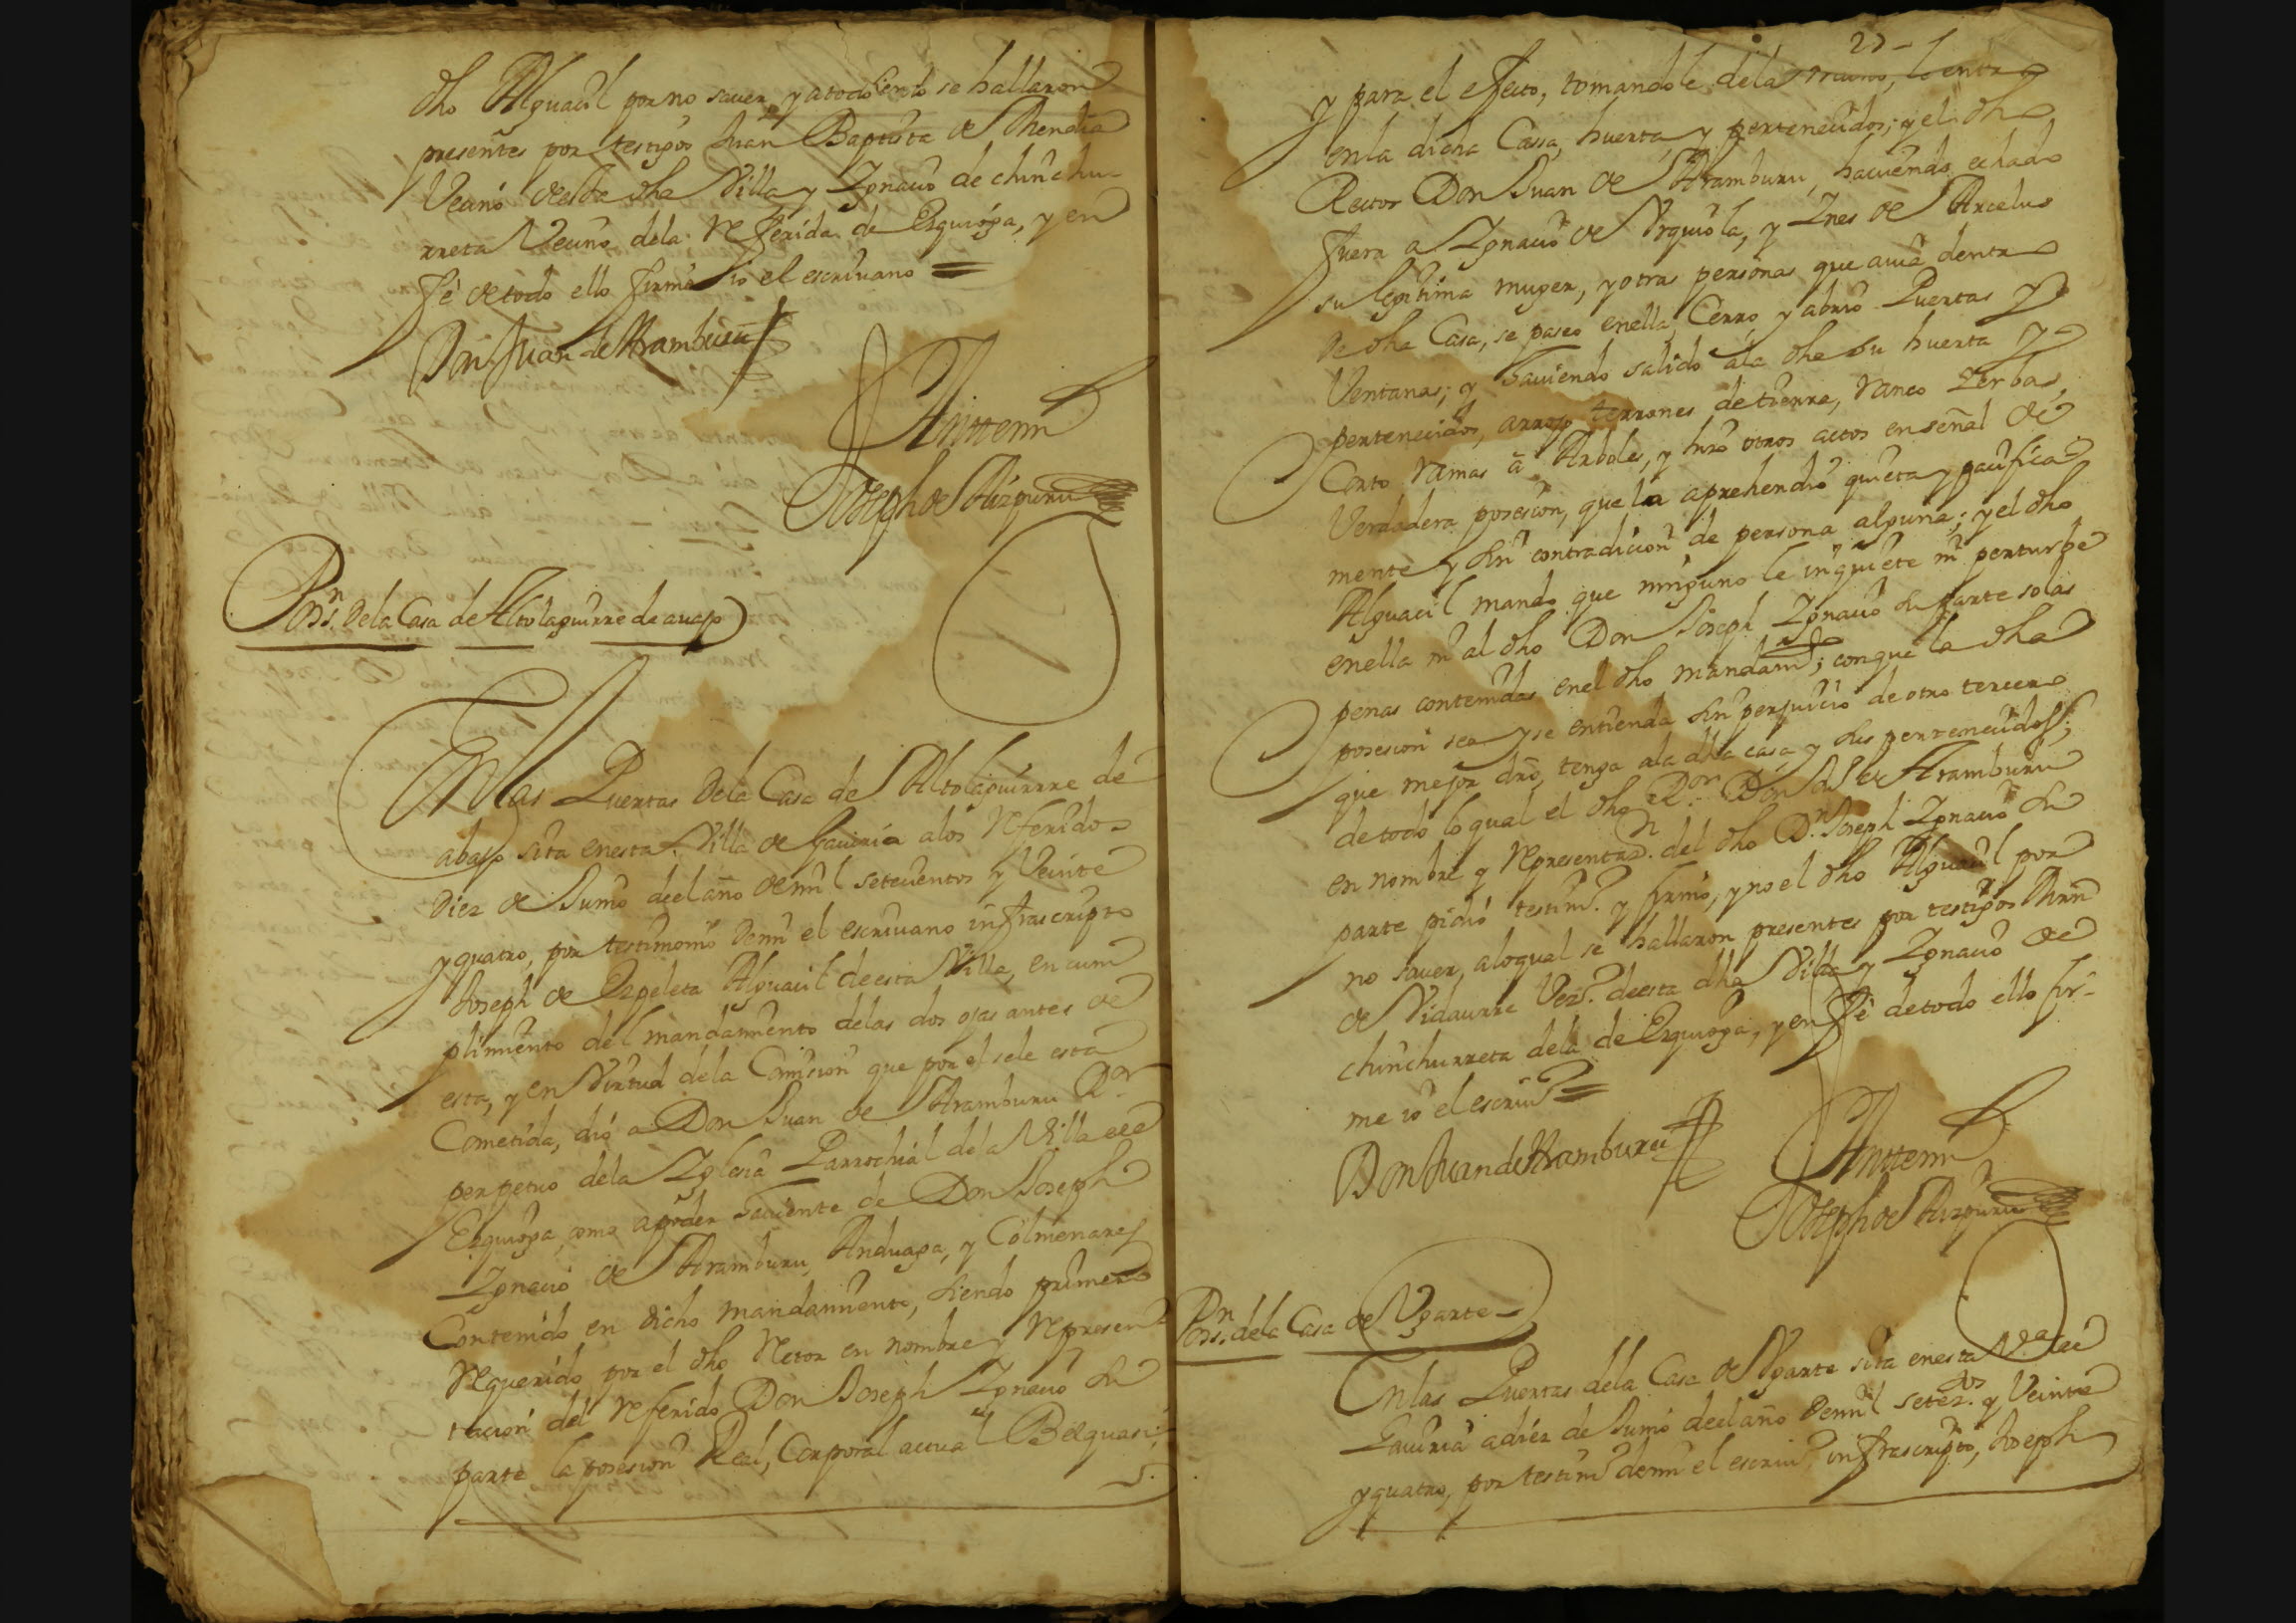 dho Alguacil por no saver, y a todo ello se hallaron
presentes por testigos Juan Baptista de Rhendia
Vecino de esta dha Villa y Ygnacio de chinchu-
rreta Vecino de la referida de Ezquioga, y en
fé de todo ello firmé io el escrivano =
Don Juan de Aramburu
Antemi
Joseph de Aizpuru
Posn. de la Casa de Altolaguirre de avajo
En las Puertas de la Casa de Altolaguirre de
abajo sita en esta Villa de Gaviria a los referidos
diez de Junio de el año de mil setecientos y Veinte
y quatro, por testimonio de mi el escrivano infrascripto
Joseph de Ezpeleta Alguacil de esta Villa, en cum
plimiento del mandamiento de las dos ojas antes de
esta, y en Virtud de la Comision que por el se le esta
Cometida, dió a Don Juan de Aramburu Ror.
perpetuo de la Yglesia Parrochial de la Villa de
Ezquioga, como apoder haviente de Don Joseph
Ygnacio de Aramburu, Anduaga, y Colmenares
Contenido en dicho mandamiento, siendo primero
requerido por el dho Retor en nombre y represen
tacion del referido Don Joseph Ygnacio su
parte, la posesion Real, Corporal actual Belquasi;
23
y para el efecto, tomandole de la mano, lo entro
en la dicha Cassa, huerta, y pertenecidos; y el dho
Rector Don Juan de Aramburu, haviendo echado
fuera a Ygnacio de Vrquiola, y Ynes de Arcelus
su legitima muger, y otras personas que avia dentro
de dha Casa, se paseo en ella, Cerro, y abrio Puertas y
Ventanas; y haviendo salido a la dha su huerta y
pertenecidos, arrojo terrones de tierra, ranco Yerbas,
Corto ramas a Arboles, y hizo otros actos en señal de
Verdadera posesion, que la aprehendio quieta y pacifica
mente y sin contradicion de persona alguna; y el dho
Alguacil mando que ninguno le inquiete ni perturbe
en ella ni al dho Don Joseph Ygnacio su parte so las
penas contenidas en el dho mandamto; con que la dha
posesion sea y se entienda sin perjuicio de otro tercero
que mejor dro, tenga a la dha casa y sus pertenecidos;
de todo lo qual el dho Ror. Don Jn de Aramburu
en nombre y representazn. del dho Dn. Joseph Ygnacio su
parte pidió testimo. y firmo, y no el dho Alguacil por
no saver, a lo qual se hallaron presentes por testigos
de Vidaurre Vezo. de esta dha Villa y Ygnacio de
chinchurreta de la de Ezquioga, y en fé de todo ello fir-
me io el escrivo =
Don Juan de Aramburu
Antemi
Joseph de Aizpuru
Posn. de la Casa de Vgarte
En las Puertas de la Casa de Vgarte sita en esta Va. de
Gaviria a diez de Junio de el año de mil setezos. y Veinte
y quatro, por testimo de mi el escrivo infrascripto, Joseph